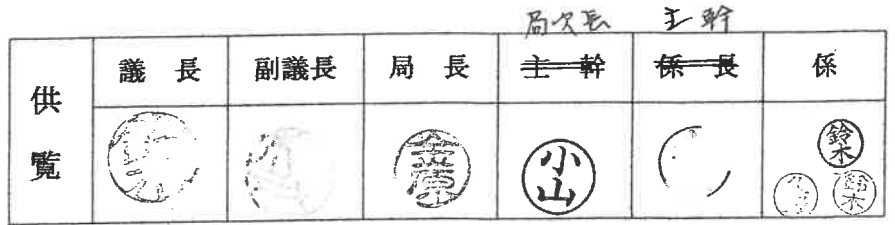 局次長 主幹
供覧 議長 副議長 局長 主幹 係長 係
小山 鈴木 鈴木